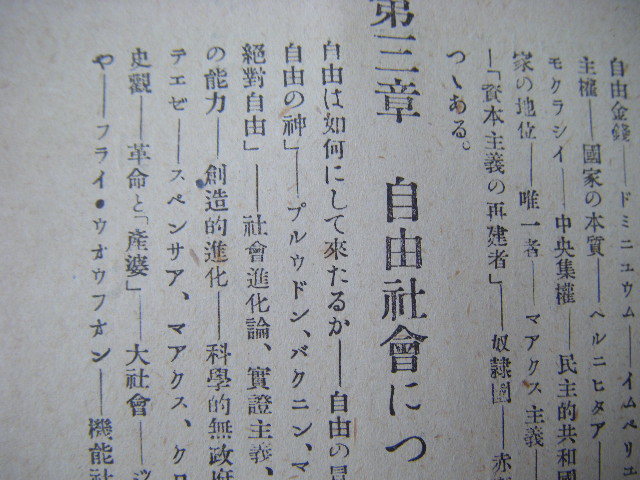 自由金錢——ドミニユウム——イムペリエ
主權——國家の本質——ヘルニヒタア——
モクラシイ——中央集權——民主的共和國
家の地位——唯一者——マアクス主義——
—「資本主義の再建者」——奴隷國——赤
つゝある。
第三章 自由社會につ
自由は如何にして來たるか——自由の
自由の神」——プルウドン、バクニン、マ
絕對自由」——社會進化論、實證主義、
の能力——創造的進化——科學的無政府
テエゼ——スペンサア、マアクス、クロ
史觀——革命と「產婆」——大社會——
や——フライ・ウオウフオン——機能社